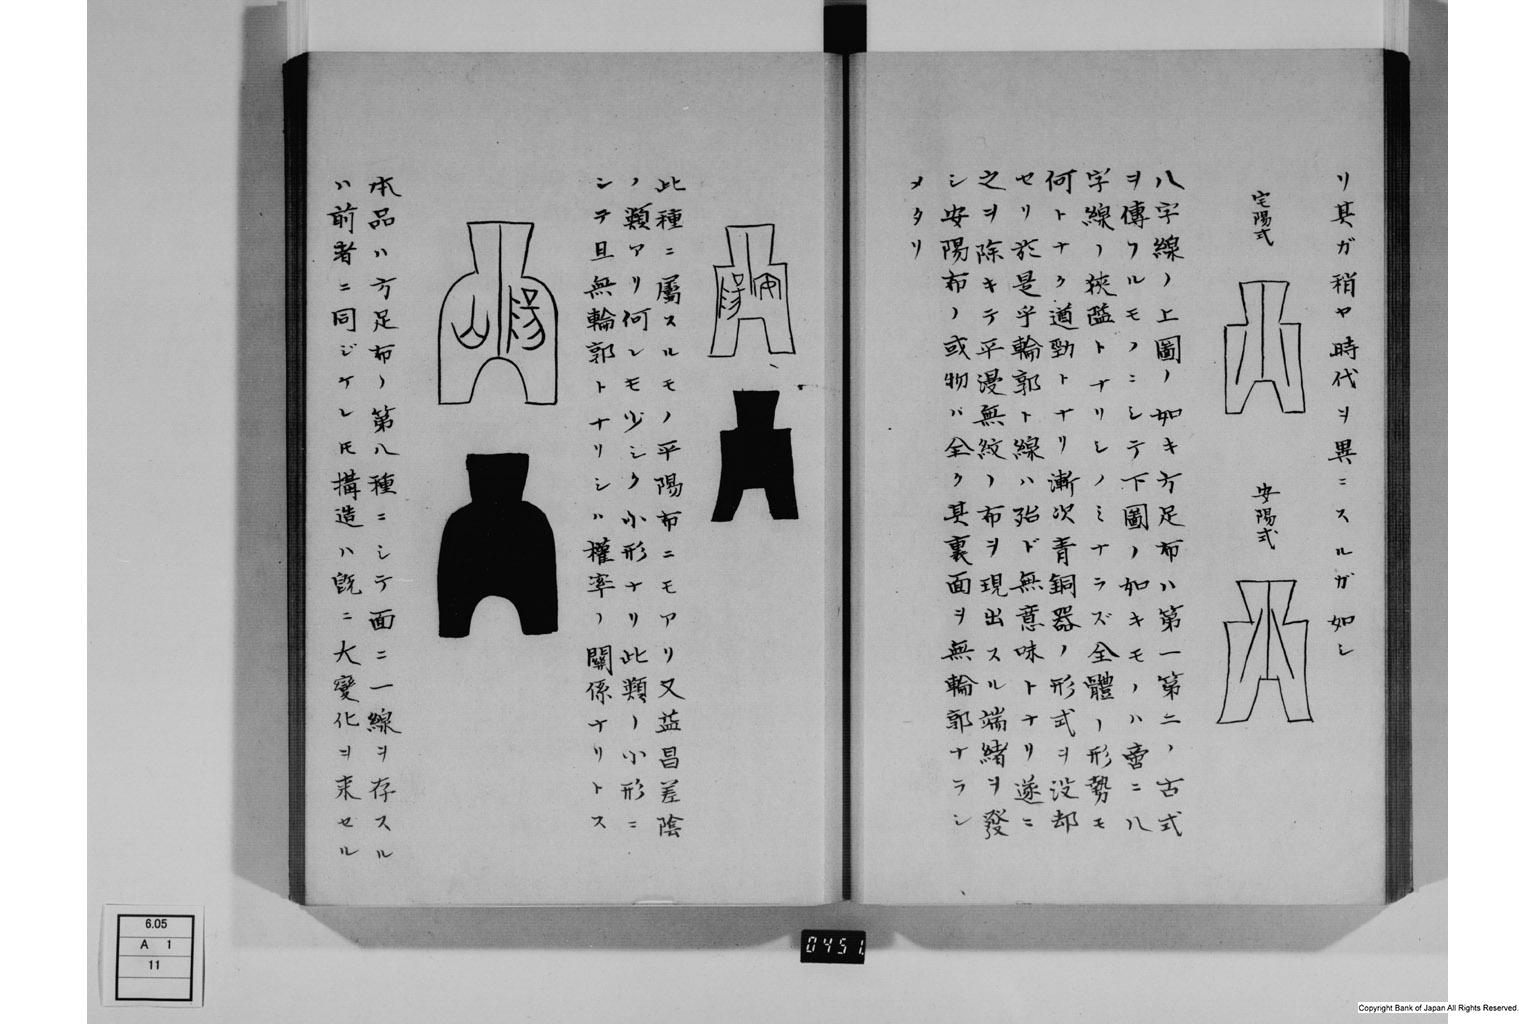 リ其ガ稍ヤ時代ヲ異ニスルガ如シ
宅陽式
安陽式
八字線ノ上圖ノ如キ方足布ハ第一第二ノ古式
ヲ傳フルモノニシテ下圖ノ如キモノハ啻ニ八
字線ノ狹隘トナリシノミナラズ全體ノ形勢モ
何トナク遒勁トナリ漸次青銅器ノ形式ヲ没却
セリ於是乎輪郭ト線ハ殆ド無意味トナリ遂ニ
之ヲ除キテ平漫無紋ノ布ヲ現出スル端緒ヲ發
シ安陽布ノ或物バ全ク其裏面ヲ無輪郭ナラシ
メタリ
安
陽
此種ニ屬スルモノ平陽布ニモアリ又益昌差陰
ノ類アリ何レモ少シク小形ナリ此類ノ小形ニ
シテ且無輪郭トナリシハ權率ノ關係ナリトス
本品ハ方足布ノ第八種ニシテ面ニ一線ヲ存スル
ハ前者ニ同ジケレ𪜈構造ハ既ニ大變化ヲ来セル
6.05
A 1
11
0451
Copyright Bank of Japan All Rights Reserved.